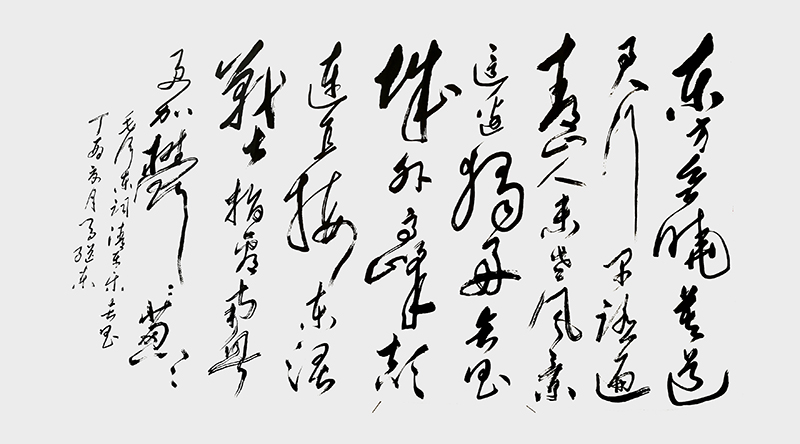 东方欲晓莫道
君行早踏遍
青山人未老风景
这边独好会昌
城外高峰颠
连直接东溟
战士指看南粤
更加鬱〻葱〻
毛泽东词清平乐会昌
丁 月马继东